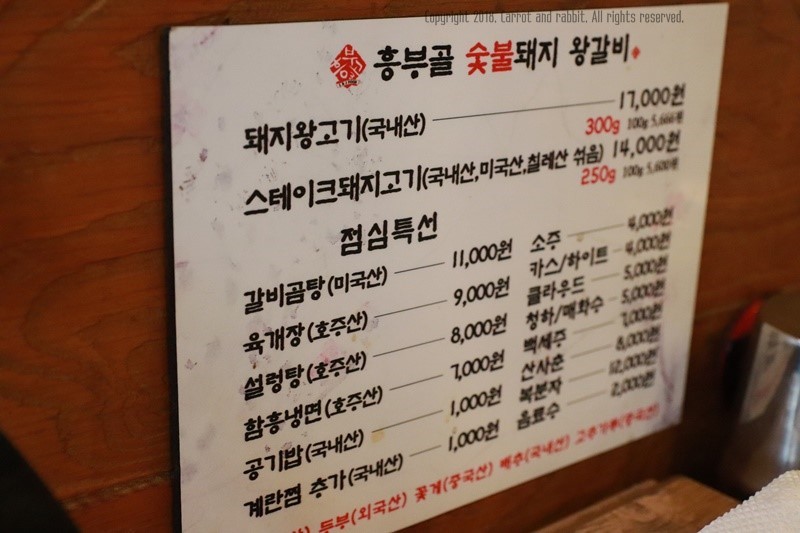 Copyright 2018. Carrot and rabbit. All rights reserved.
흥부골 숯불돼지 왕갈비
돼지왕고기(국내산) 17,000원
300g 100g 5,666원
스테이크돼지고기(국내산,미국산,칠레산 섞음) 14,000원
250g 100g 5,600원
점심특선
갈비곰탕(미국산) 11,000원
육개장(호주산) 9,000원
설렁탕(호주산) 8,000원
함흥냉면(호주산) 7,000원
공기밥(국내산) 1,000원
계란찜 추가(국내산) 1,000원
소주 4,000원
카스/하이트 4,000원
클라우드 5,000원
청하/매화수 5,000원
백세주 7,000원
산사춘 8,000원
복분자 12,000원
음료수 2,000원
두부(외국산) 꽃게(중국산) 배추(국내산) 고추가루(중국산)